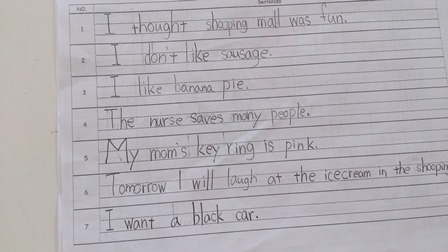 NO. Sentences
1 I thought shopping mall was fun.
2 I don't like sausage.
3 I like banana pie.
4 The nurse saves many people.
5 My mom's key ring is pink.
6 Tomorrow I will laugh at the icecream in the shoppin
7 I want a black car.